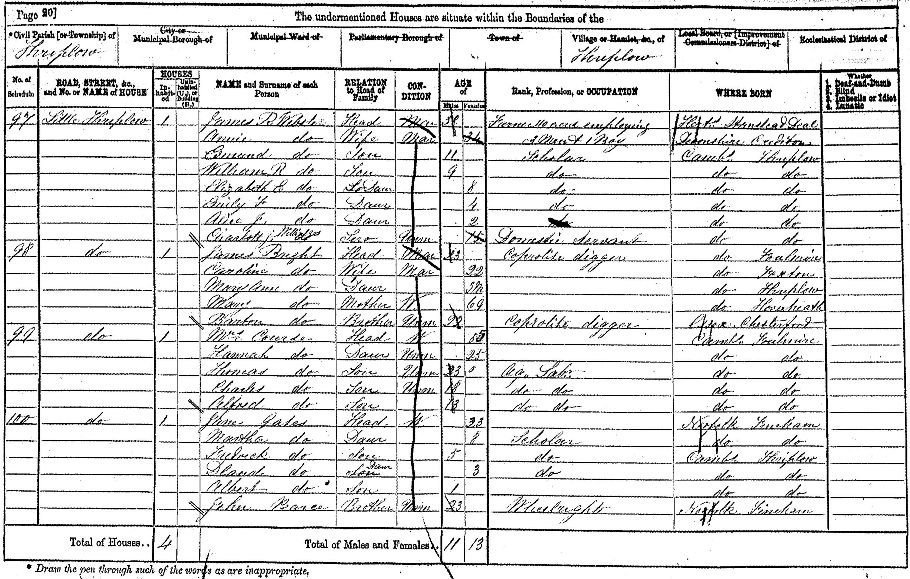 Page 20]
The undermentioned Houses are situate within the Boundaries of the
*Civil Parish [or Township] of
City or Municipal Borough of
Municipal Ward of
Parliamentary Borough of
Town of
Village or Hamlet, &c., of
Local Board, or [Improvement Commissioners District] of
Ecclesiastical District of
Thriplow
Thriplow
No. of Schedule
ROAD, STREET, &c., and No. or NAME of HOUSE
HOUSES
Inhabited
Uninhabited (U.), or Building (B.)
NAME and Surname of each Person
RELATION to Head of Family
CONDITION
AGE of
Males
Females
Rank, Profession, or OCCUPATION
WHERE BORN
Whether
1. Deaf-and-Dumb
2. Blind
3. Imbecile or Idiot
4. Lunatic
97 Little Thriplow 1 James Webster Head Mar employing
Annie do Wife Mar 34 2 Men & 1 Boy Devonshire Crediton
Edmund do Son 11 Scholar Cambs Thriplow
William R do Son 9 do do do
Elizabeth E do Daur 8 do do do
Emily F do Daur 4 do do do
Alice J. do Daur 2 do do do
Charlotte Serv Unm Domestic Servant do do
98 do 1 James Bright Head Mar 23 Coprolite digger do Foulmire
Caroline do Wife Mar 22 do Foxton
Mary Ann do Daur do Thriplow
Mary do Mother W 69 do
do Brother Unm 22 Coprolite digger Essex Chesterford
99 do 1 Mrs Head W 55 Cambs Foulmire
Hannah do Daur Unm 25 do do
Thomas do Son Unm 23 Ag. Labr do do
Charles do Son Unm 18 do do do do
Alfred do Son 13 do do do do
100 do 1 Jane Gates Head W 33 Norfolk Fincham
Martha do Daur 8 Scholar do do
Fredrick do Son 5 do Cambs Thriplow
do Daur 3 do do do
Albert do Son 1 do do
John Brother Unm 23 Wheelwright Norfolk Fincham
Total of Houses.. 4
Total of Males and Females.. 11 13
* Draw the pen through such of the words as are inappropriate.